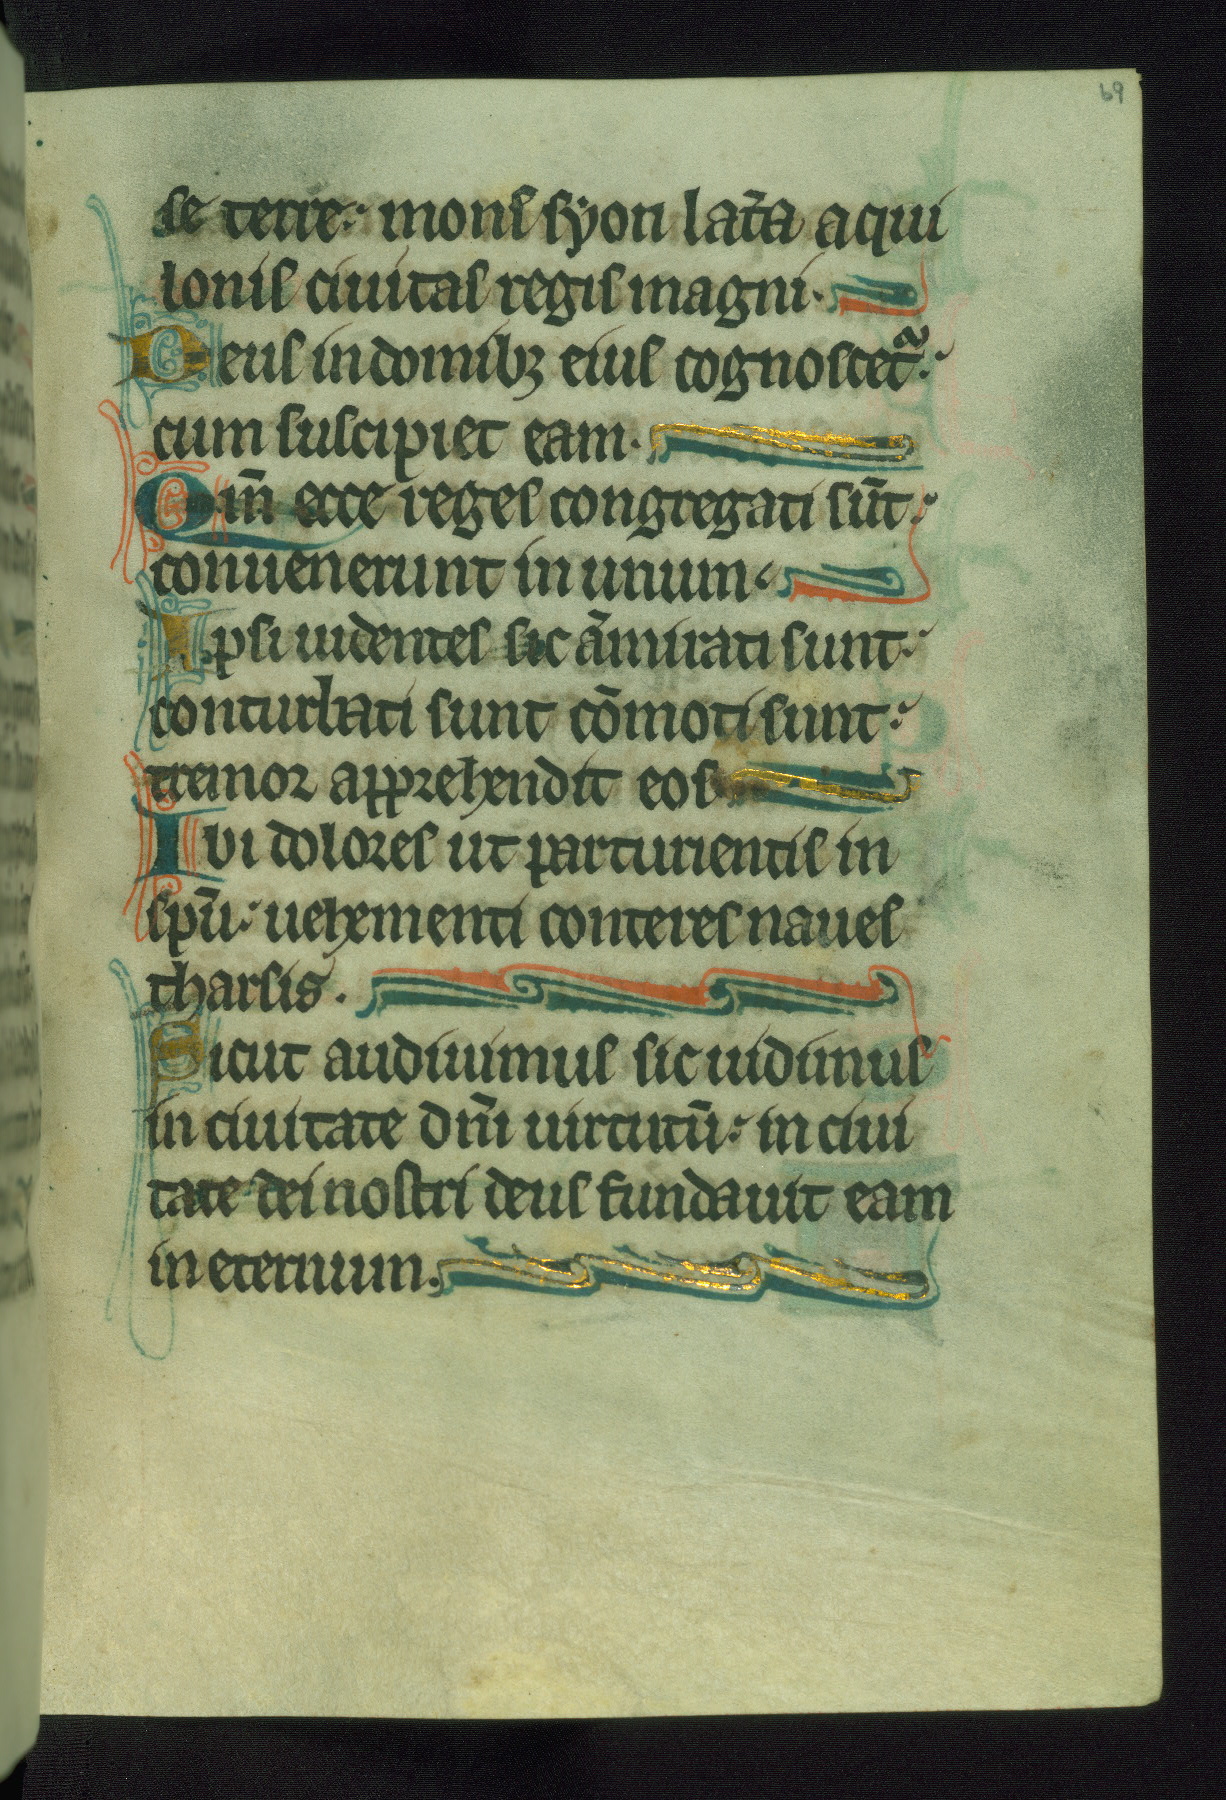 69
se terre: mons syon lat̄a aqui
lonis ciuitas regis magni.
Deus in domibꝫ eius cognoscetᷓ:
cum suscipiet eam.
Qm̄ ecce reges congregati sūt:
conuenerunt in unum.
Ipsi uidentes sic āmirati sunt:
conturbati sunt cōmoti sunt:
tremor apprehendit eos
Ibi dolores ut parturientis in
spū: uehementi conteres naues
tharsis.
Sicut audiuimus sic uidimus
in ciuitate dn̄i uirtutū: in ciui
tate dei nostri deus fundauit eam
in eternum.